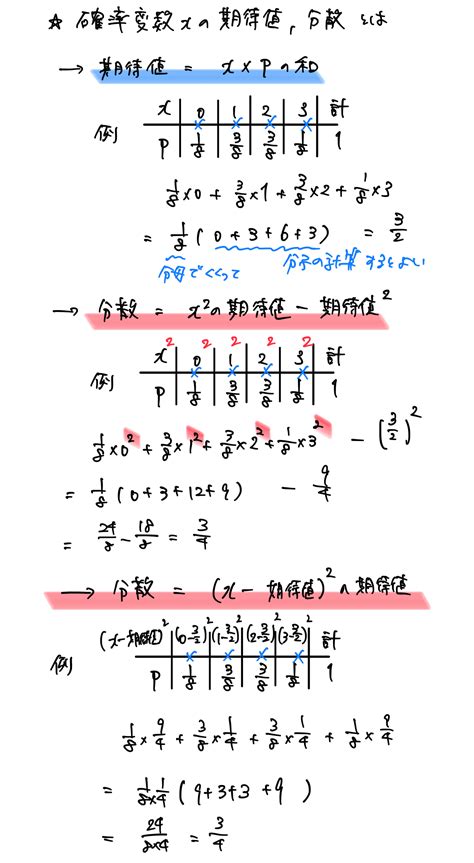 ☆ 確率変数 x の 期待値, 分散 とは
→ 期待値 = x × P の和
例
x | 0 | 1 | 2 | 3 | 計
P | 1/8 | 3/8 | 3/8 | 1/8 | 1
1/8×0 + 3/8×1 + 3/8×2 + 1/8×3
= 1/8 ( 0 + 3 + 6 + 3 ) = 3/2
分母でくくって 分子の計算するとよい
→ 分散 = x²の期待値 − 期待値²
例
x² | 0² | 1² | 2² | 3² | 計
P | 1/8 | 3/8 | 3/8 | 1/8 | 1
1/8×0² + 3/8×1² + 3/8×2² + 1/8×3² − (3/2)²
= 1/8 (0+3+12+9) − 9/4
= 24/8 − 18/8 = 3/4
→ 分散 = (x − 期待値)² の期待値
例
(x−期待値)² | (0−3/2)² | (1−3/2)² | (2−3/2)² | (3−3/2)² | 計
P | 1/8 | 3/8 | 3/8 | 1/8 | 1
1/8 × 9/4 + 3/8 × 1/4 + 3/8 × 1/4 + 1/8 × 9/4
= 1/8×1/4 ( 9+3+3+9 )
= 24/8×4 = 3/4